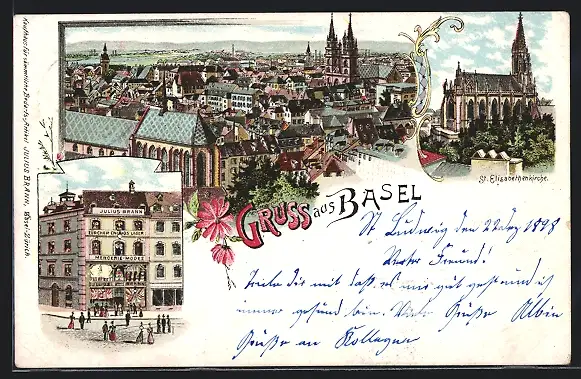 Kaufhaus für sämmtliche Bedarfs-Artikel JULIUS BRANN, Basel-Zürich.
St. Elisabethenkirche.
JULIUS BRANN
ZÜRCHER ENGROS LAGER
MERCERIE MODES
GRUSS aus BASEL
St. Ludwig den 22 Dez 1898
Werter Freund!
Teile dir mit daß es mir gut geht und ich
immer gesund bin. Viele Grüße Albin
Grüße an Kollegen